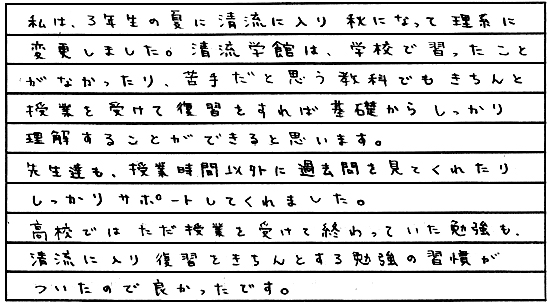 私は、3年生の夏に清流に入り秋になって理系に
変更しました。清流学館は、学校で習ったこと
がなかったり、苦手だと思う教科でもきちんと
授業を受けて復習をすれば基礎からしっかり
理解することができると思います。
先生達も、授業時間以外に過去問を見てくれたり
しっかりサポートしてくれました。
高校ではただ授業を受けて終わっていた勉強も、
清流に入り復習をきちんとする勉強の習慣が
ついたので良かったです。